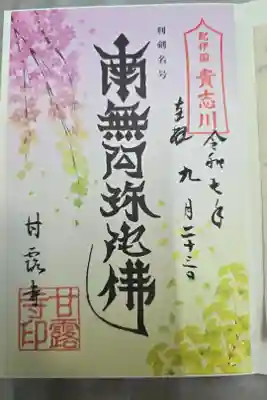 紀伊国
貴志川
奉拝
令和七年
九月二十三日
利剣名号
南無阿弥陀佛
甘露寺
甘露
寺印